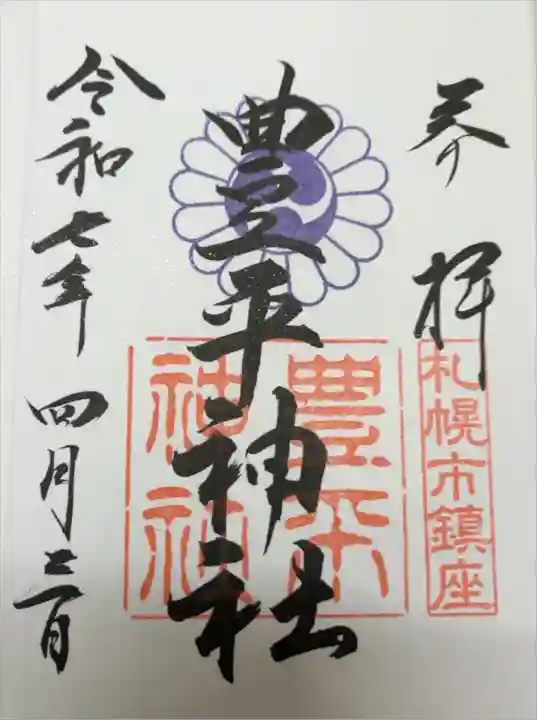 奉拝
札幌市鎮座
豊平神社
豊平
神社
令和七年 四月二日